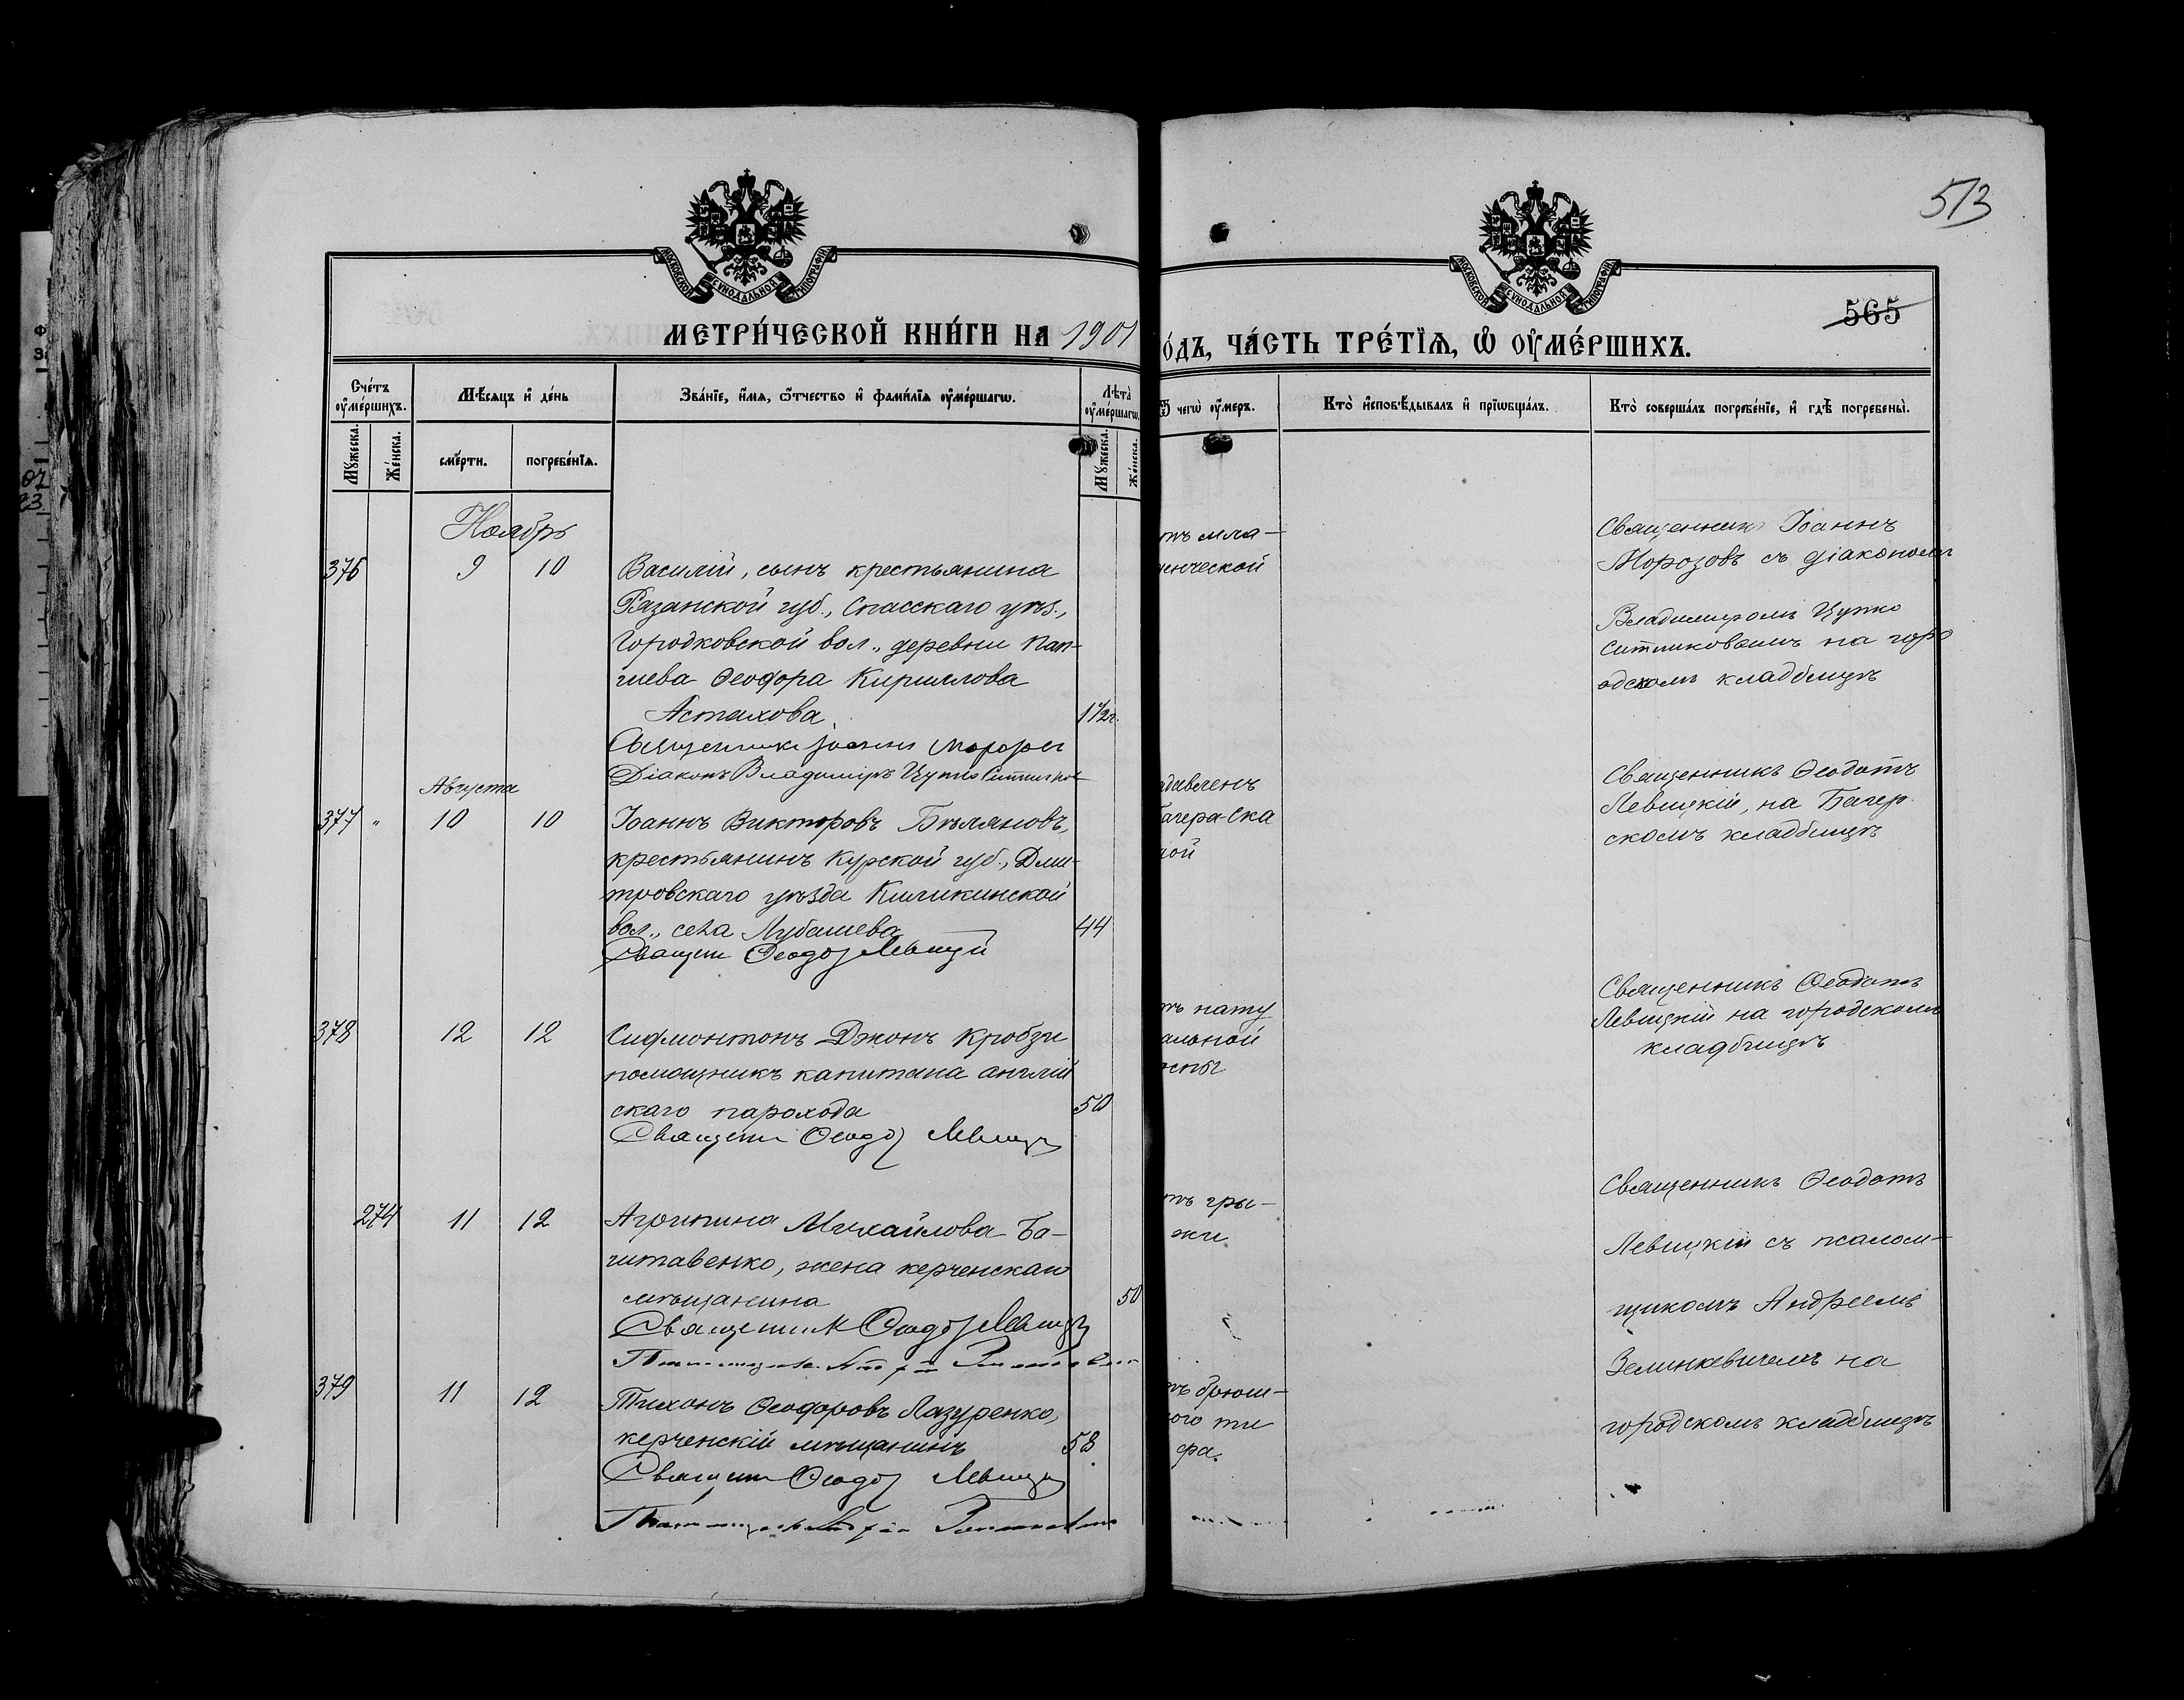 513
565
МОСКОВСКОЙ СѴНОДАЛЬНОЙ ТИПОГРАФІИ
МОСКОВСКОЙ СѴНОДАЛЬНОЙ ТИПОГРАФІИ
МЕТРИ́ЧЕСКОЙ КНИ́ГИ НА 1901
О́ДЪ, ЧА́СТЬ ТРЕ́ТЇѦ, Ѡ҆ ОУ҆МЕ́РШИХЪ.
Сче́тъ оу҆ме́ршихъ.
Мѣ́сяцъ и҆ де́нь
Зва́нїе, и҆́мя, ѻ҆́тчество и҆ фами́лїя оу҆ме́ршагѡ.
Лѣ́та оу҆ме́ршагѡ.
Ѿ чегѡ̀ оу҆́меръ.
Кто̀ и҆сповѣ́дывалъ и҆ прїѡбща́лъ.
Кто̀ соверша́лъ погребе́нїе, и҆ гдѣ̀ погребены̀.
Мꙋ́жеска.
Же́нска.
сме́рти.
погребе́нїя.
Мꙋ́жеска.
Же́нска.
Ноябрь
376 9 10
Василій, сынъ крестьянина
Рязанской губ., Спасскаго уѣз.,
Городковской вол., деревни Пап-
гиева Ѳеодора Кириллова
Астахова
1 1/2 г.
Священникъ Іоаннъ Морозов
Діаконъ Владиміръ Цупко
тъ мла-
енческой
Священникъ Іоаннъ
Морозовъ съ діакономъ
Владиміромъ Цупко
Ситниковымъ на горо
одскомъ кладбищѣ
Августа
377 " 10 10
Іоаннъ Викторовъ Бѣляновъ,
крестьянинъ Курской губ., Дми-
тровскаго уѣзда Кишкинской
вол., села Лубашева
44
Священ Ѳеодот Левицкій
здавленъ
Багера-Ска
лой
Священникъ Ѳеодотъ
Левицкій, на Багер
скомъ кладбищѣ
378 12 12
Сифмонтонъ Джонъ Кробзи
помощникъ капитана англій
скаго парохода
50
Священ Ѳеодот Левицк
тъ нату
альной
оспы
Священникъ Ѳеодотъ
Левицкій на городскомъ
кладбищѣ
274 11 12
Агрипина Михайлова Ба-
штавенко, жена керченскаго
мѣщанина
50
Священник Ѳеодот Левицк
тъ гры-
жи
Священникъ Ѳеодотъ
Левицкій съ псалом-
щикомъ Андреемъ
Зелинкевичемъ на
городскомъ кладбищѣ
379 11 12
Тихонъ Ѳеодоровъ Лазуренко,
керченскій мѣщанинъ
58
Священ Ѳеодот Левицк
тъ брюш-
ного ти
фа.